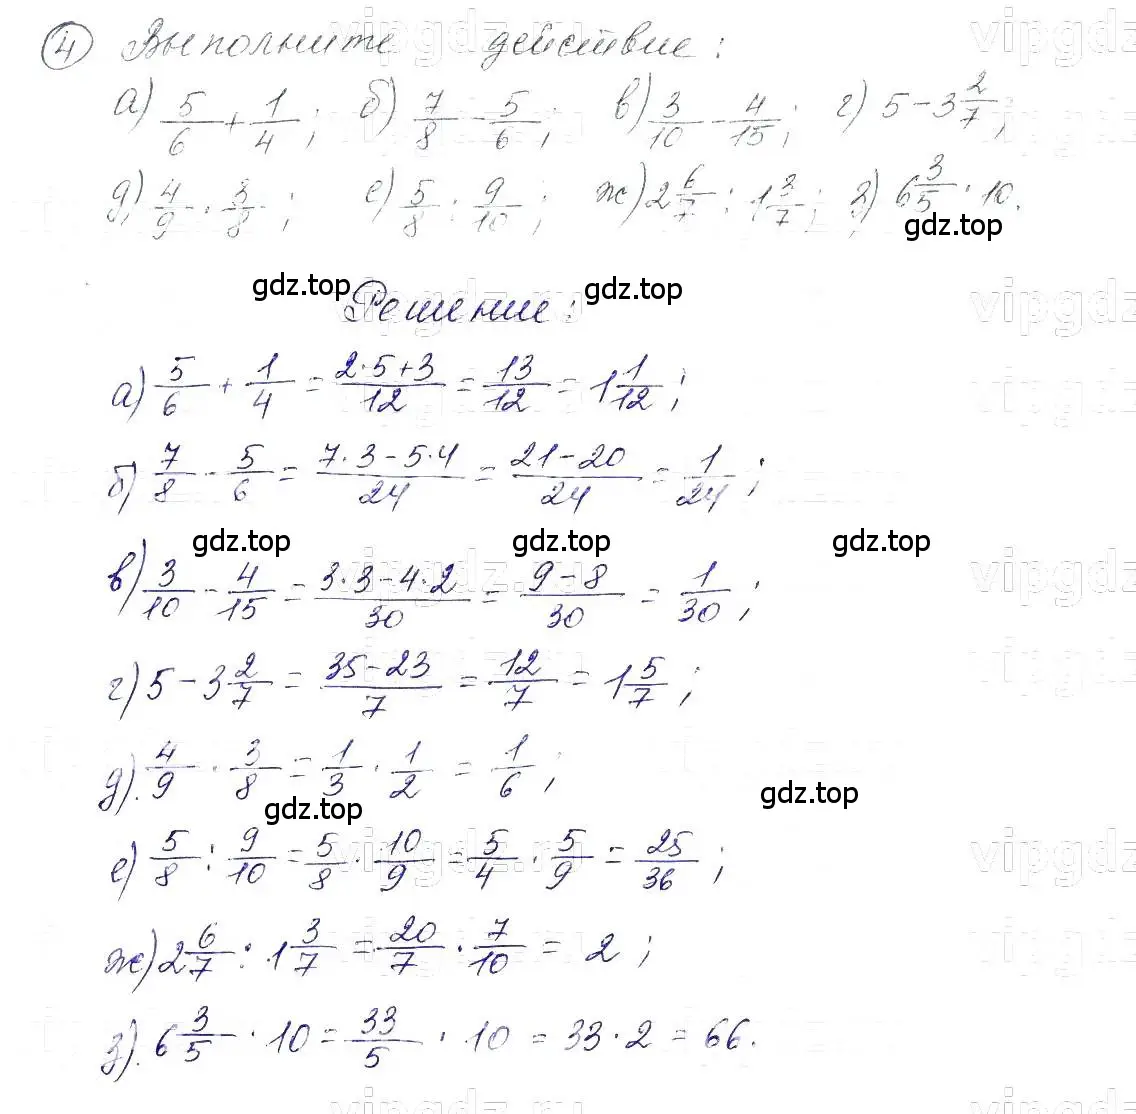 4 Выполните действие:
а) 5/6 + 1/4; б) 7/8 - 5/6; в) 3/10 - 4/15; г) 5 - 3 2/7;
д) 4/9 · 3/8; е) 5/8 : 9/10; ж) 2 6/7 : 1 3/7; з) 6 3/5 · 10.
gdz.top
gdz.top gdz.top
Решение:
а) 5/6 + 1/4 = (2·5+3)/12 = 13/12 = 1 1/12;
б) 7/8 - 5/6 = (7·3-5·4)/24 = (21-20)/24 = 1/24;
gdz.top gdz.top gdz.top
в) 3/10 - 4/15 = (3·3-4·2)/30 = (9-8)/30 = 1/30;
г) 5 - 3 2/7 = (35-23)/7 = 12/7 = 1 5/7;
д) 4/9 · 3/8 = 1/3 · 1/2 = 1/6;
gdz.top gdz.top
е) 5/8 : 9/10 = 5/8 · 10/9 = 5/4 · 5/9 = 25/36;
ж) 2 6/7 : 1 3/7 = 20/7 · 7/10 = 2;
з) 6 3/5 · 10 = 33/5 · 10 = 33·2 = 66.
vipgdz.ru